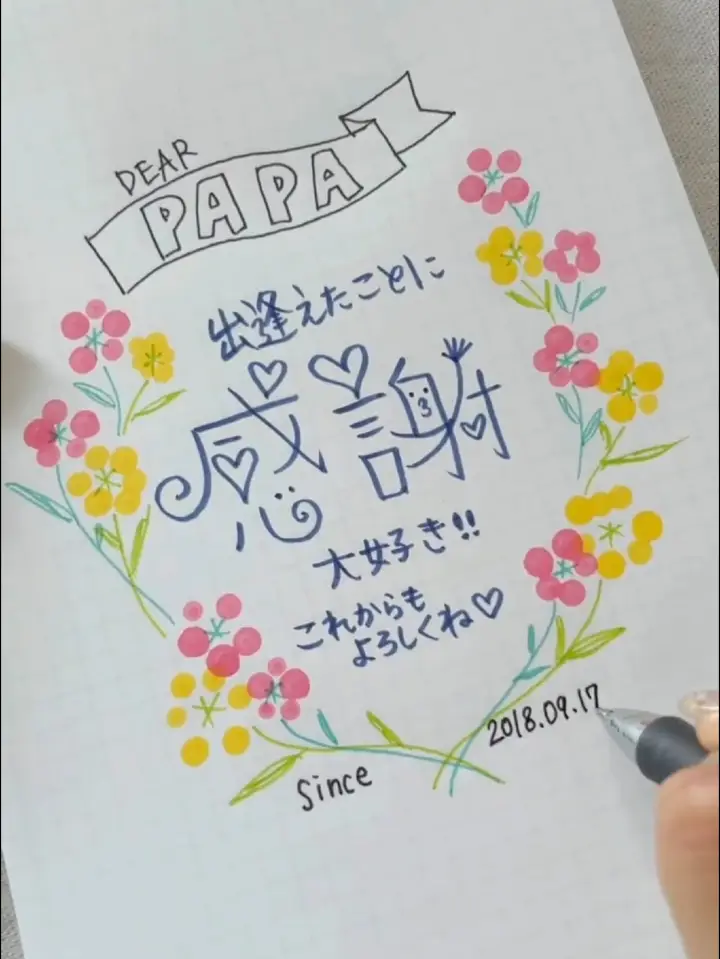 DEAR
PAPA
出逢えたことに
感謝
大好き!!
これからも
よろしくね♡
2018.09.17
Since